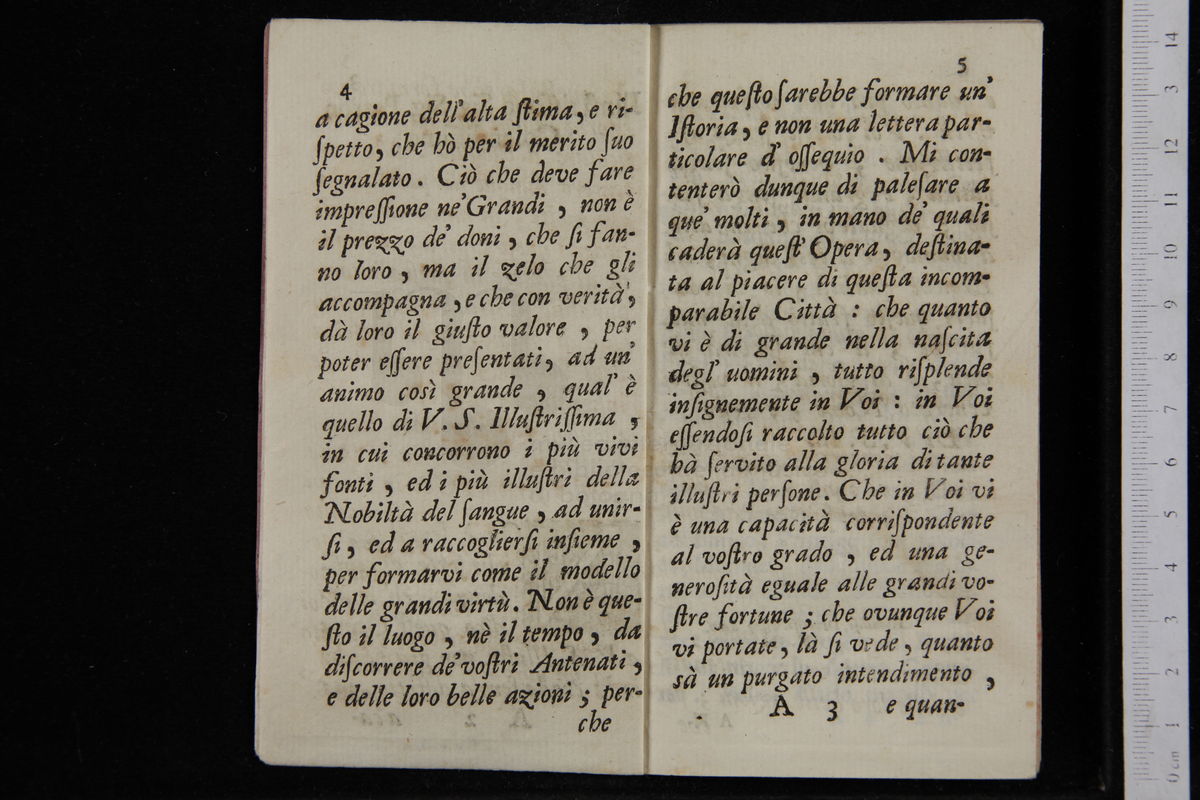 4
a cagione dell'alta ſtima, e ri-
ſpetto, che hò per il merito ſuo
ſegnalato. Ciò che deve fare
impreſſione ne' Grandi, non è
il prezzo de' doni, che ſi fan-
no loro, ma il zelo che gli
accompagna, e che con verità,
dà loro il giuſto valore, per
poter eſſere preſentati, ad un'
animo così grande, qual' è
quello di V. S. Illuſtriſſima,
in cui concorrono i più vivi
fonti, ed i più illuſtri della
Nobiltà del ſangue, ad unir-
ſi, ed a raccoglierſi inſieme,
per formarvi come il modello
delle grandi virtù. Non è que-
ſto il luogo, nè il tempo, da
diſcorrere de' voſtri Antenati,
e delle loro belle azioni; per-
che
5
che queſto ſarebbe formare un'
Iſtoria, e non una lettera par-
ticolare d' oſſequio. Mi con-
tenterò dunque di paleſare a
que' molti, in mano de' quali
caderà queſt' Opera, deſtina-
ta al piacere di queſta incom-
parabile Città: che quanto
vi è di grande nella naſcita
degl' uomini, tutto riſplende
inſignemente in Voi: in Voi
eſſendoſi raccolto tutto ciò che
hà ſervito alla gloria di tante
illuſtri perſone. Che in Voi vi
è una capacità corriſpondente
al voſtro grado, ed una ge-
neroſità eguale alle grandi vo-
ſtre fortune; che ovunque Voi
vi portate, là ſi vede, quanto
sà un purgato intendimento,
A 3 e quan-
0 cm 1 2 3 4 5 6 7 8 9 10 11 12 3 14